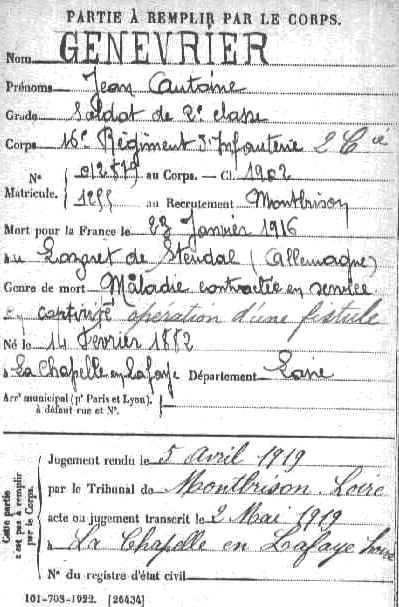 PARTIE À REMPLIR PAR LE CORPS.
Nom GENEVRIER
Prénoms Jean Antoine
Grade Soldat de 2e classe
Corps 16e Régiment d'Infanterie 2 Cie
N° 012879 au Corps. — Cl. 1902
Matricule. 1255 au Recrutement Montbrison
Mort pour la France le 23 Janvier 1916
au Lazaret de Stendal (Allemagne)
Genre de mort Maladie contractée en service
en captivité opération d'une fistule
Né le 14 Février 1882
à La Chapelle en Lafaye Département Loire
Arrt municipal (pr Paris et Lyon),
à défaut rue et N°.
Cette partie
n'est pas à remplir
par le Corps.
Jugement rendu le 5 Avril 1919
par le Tribunal de Montbrison Loire
acte ou jugement transcrit le 2 Mai 1919
à La Chapelle en Lafaye Loire
N° du registre d'état civil
101-708-1922. [26434]